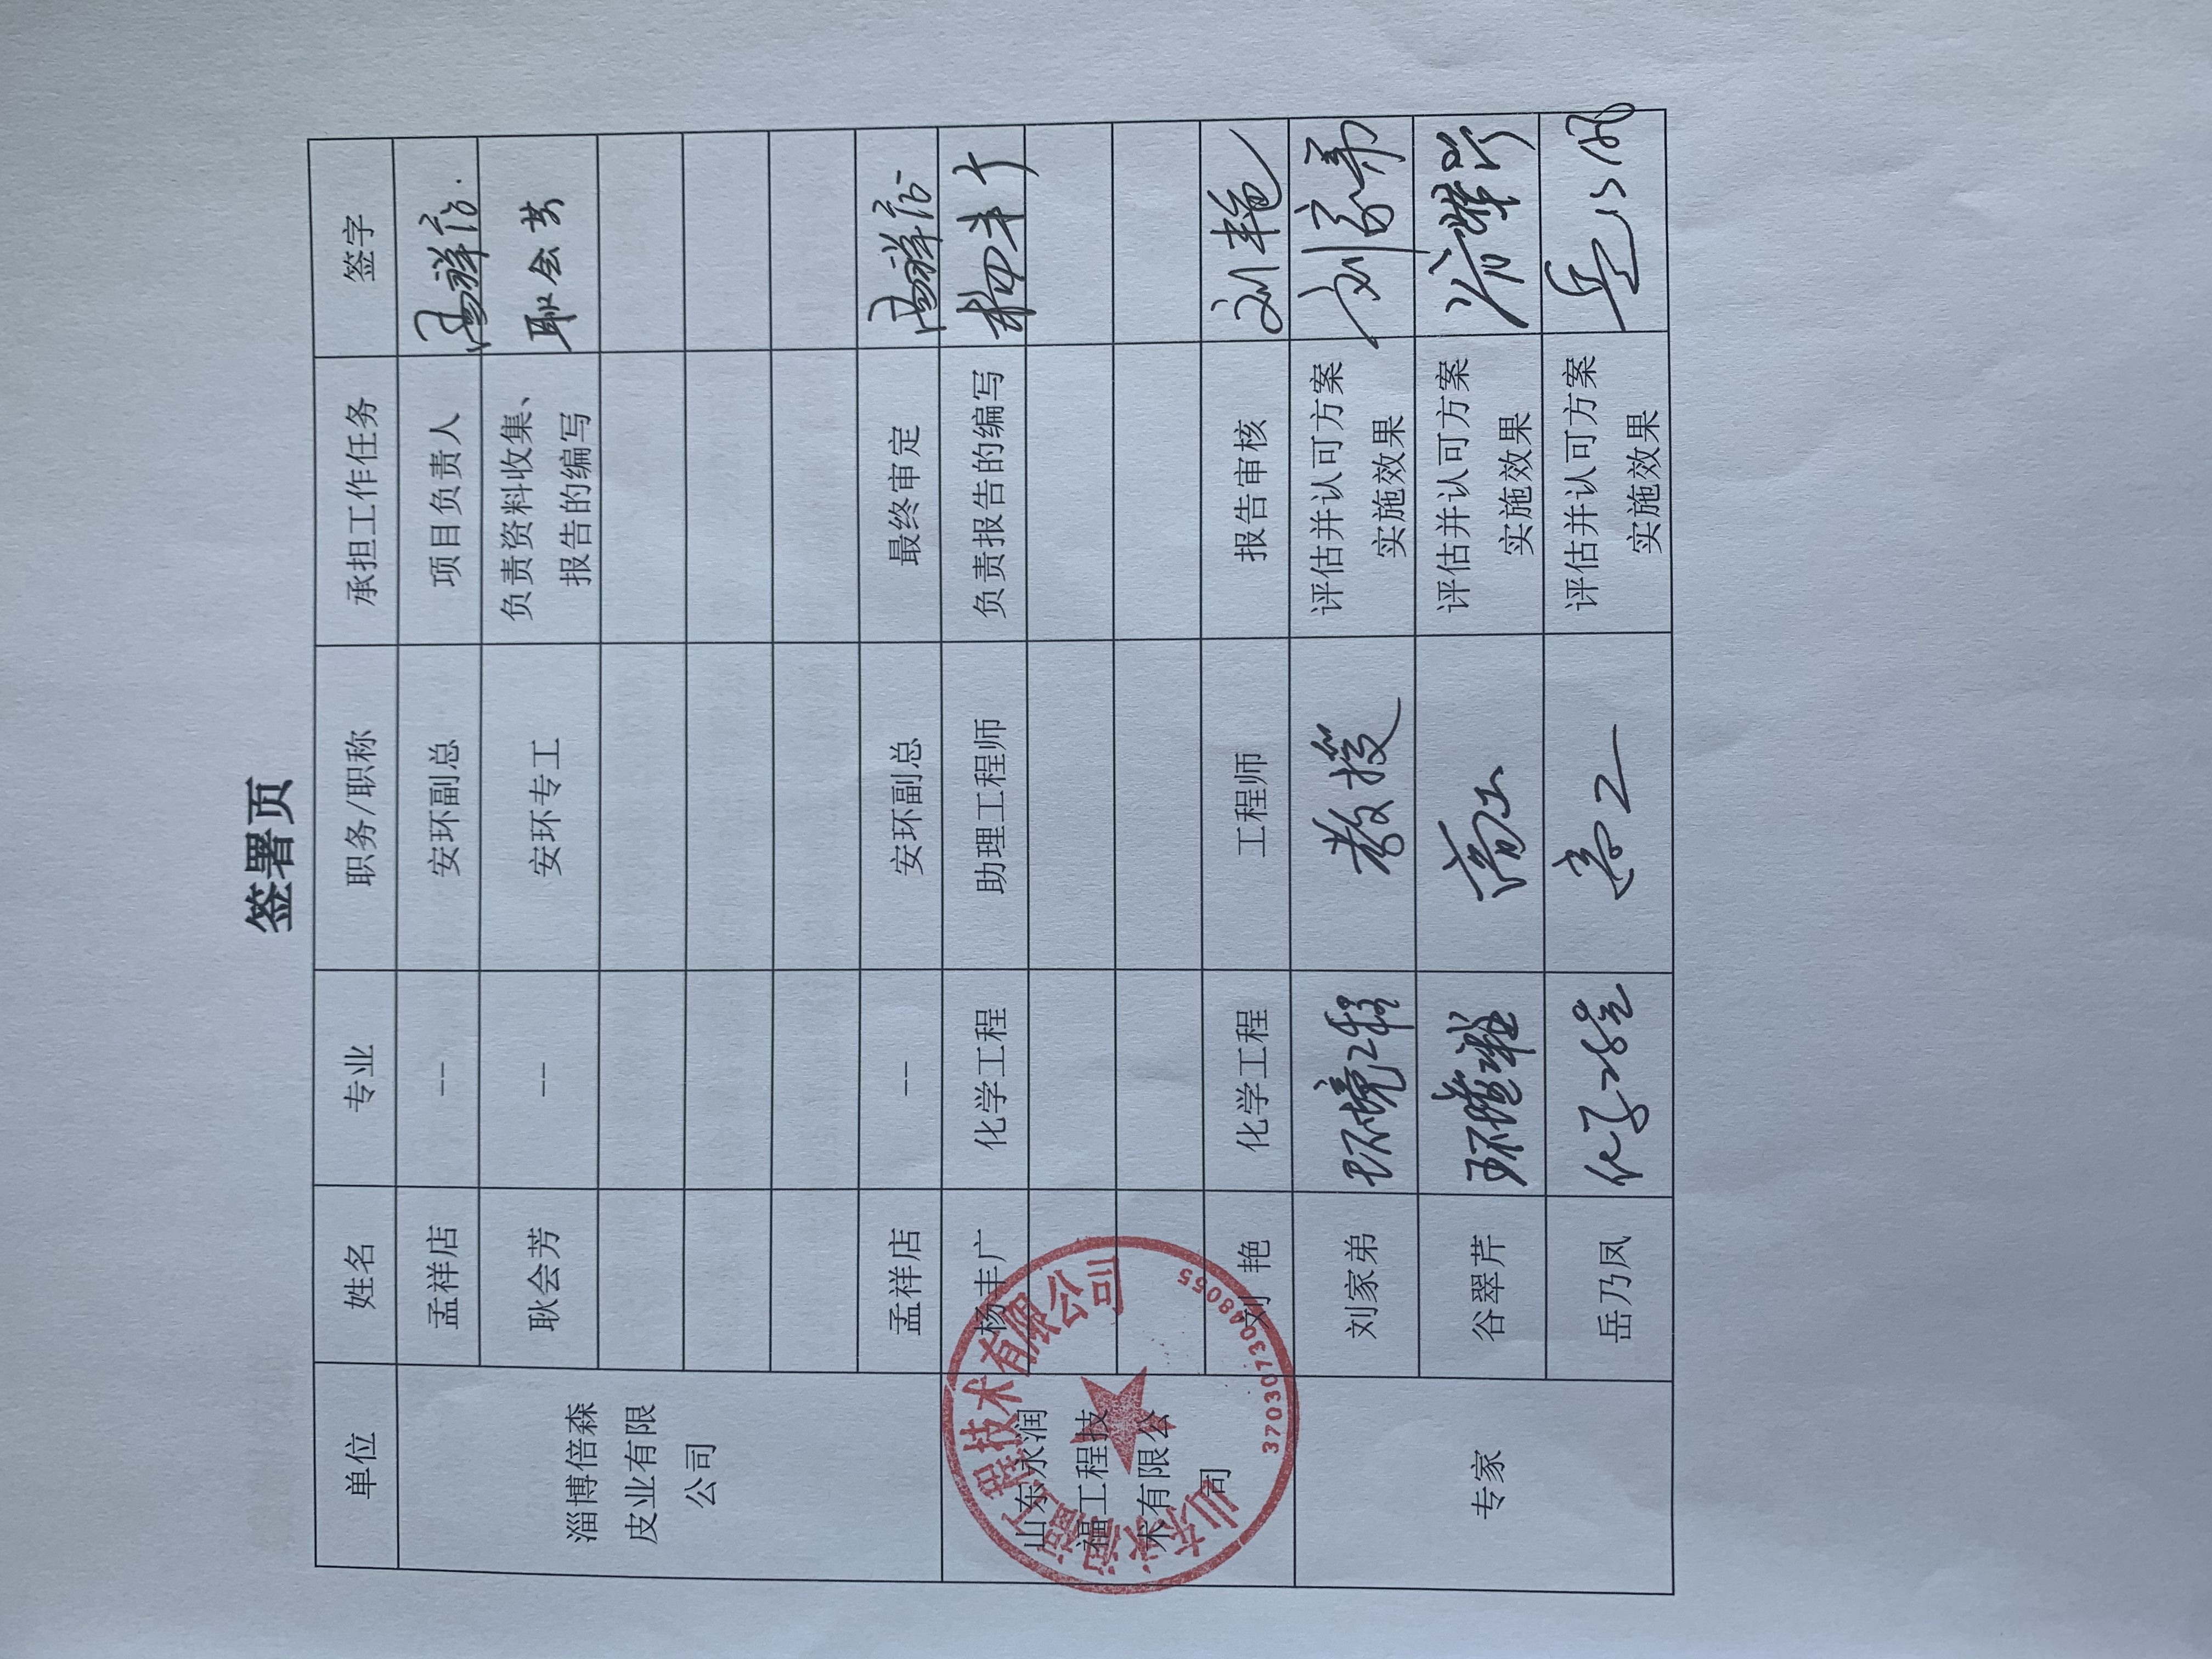 签署页
单位 姓名 专业 职务/职称 承担工作任务 签字
淄博倍森
皮业有限
公司
孟祥店 -- 安环副总 项目负责人 孟祥店
耿会芳 -- 安环专工 负责资料收集、
报告的编写 耿会芳
孟祥店 -- 安环副总 最终审定 孟祥店
山东永润
福工程技
术有限公
司
杨丰广 化学工程 助理工程师 负责报告的编写 杨丰广
刘 艳 化学工程 工程师 报告审核 刘艳
专家
刘家弟 环境工程 教授 评估并认可方案
实施效果 刘家弟
谷翠芹 环境工程 高工 评估并认可方案
实施效果 谷翠芹
岳乃凤 化学工程 高工 评估并认可方案
实施效果 岳乃凤
山东永润福工程技术有限公司
3703073048055